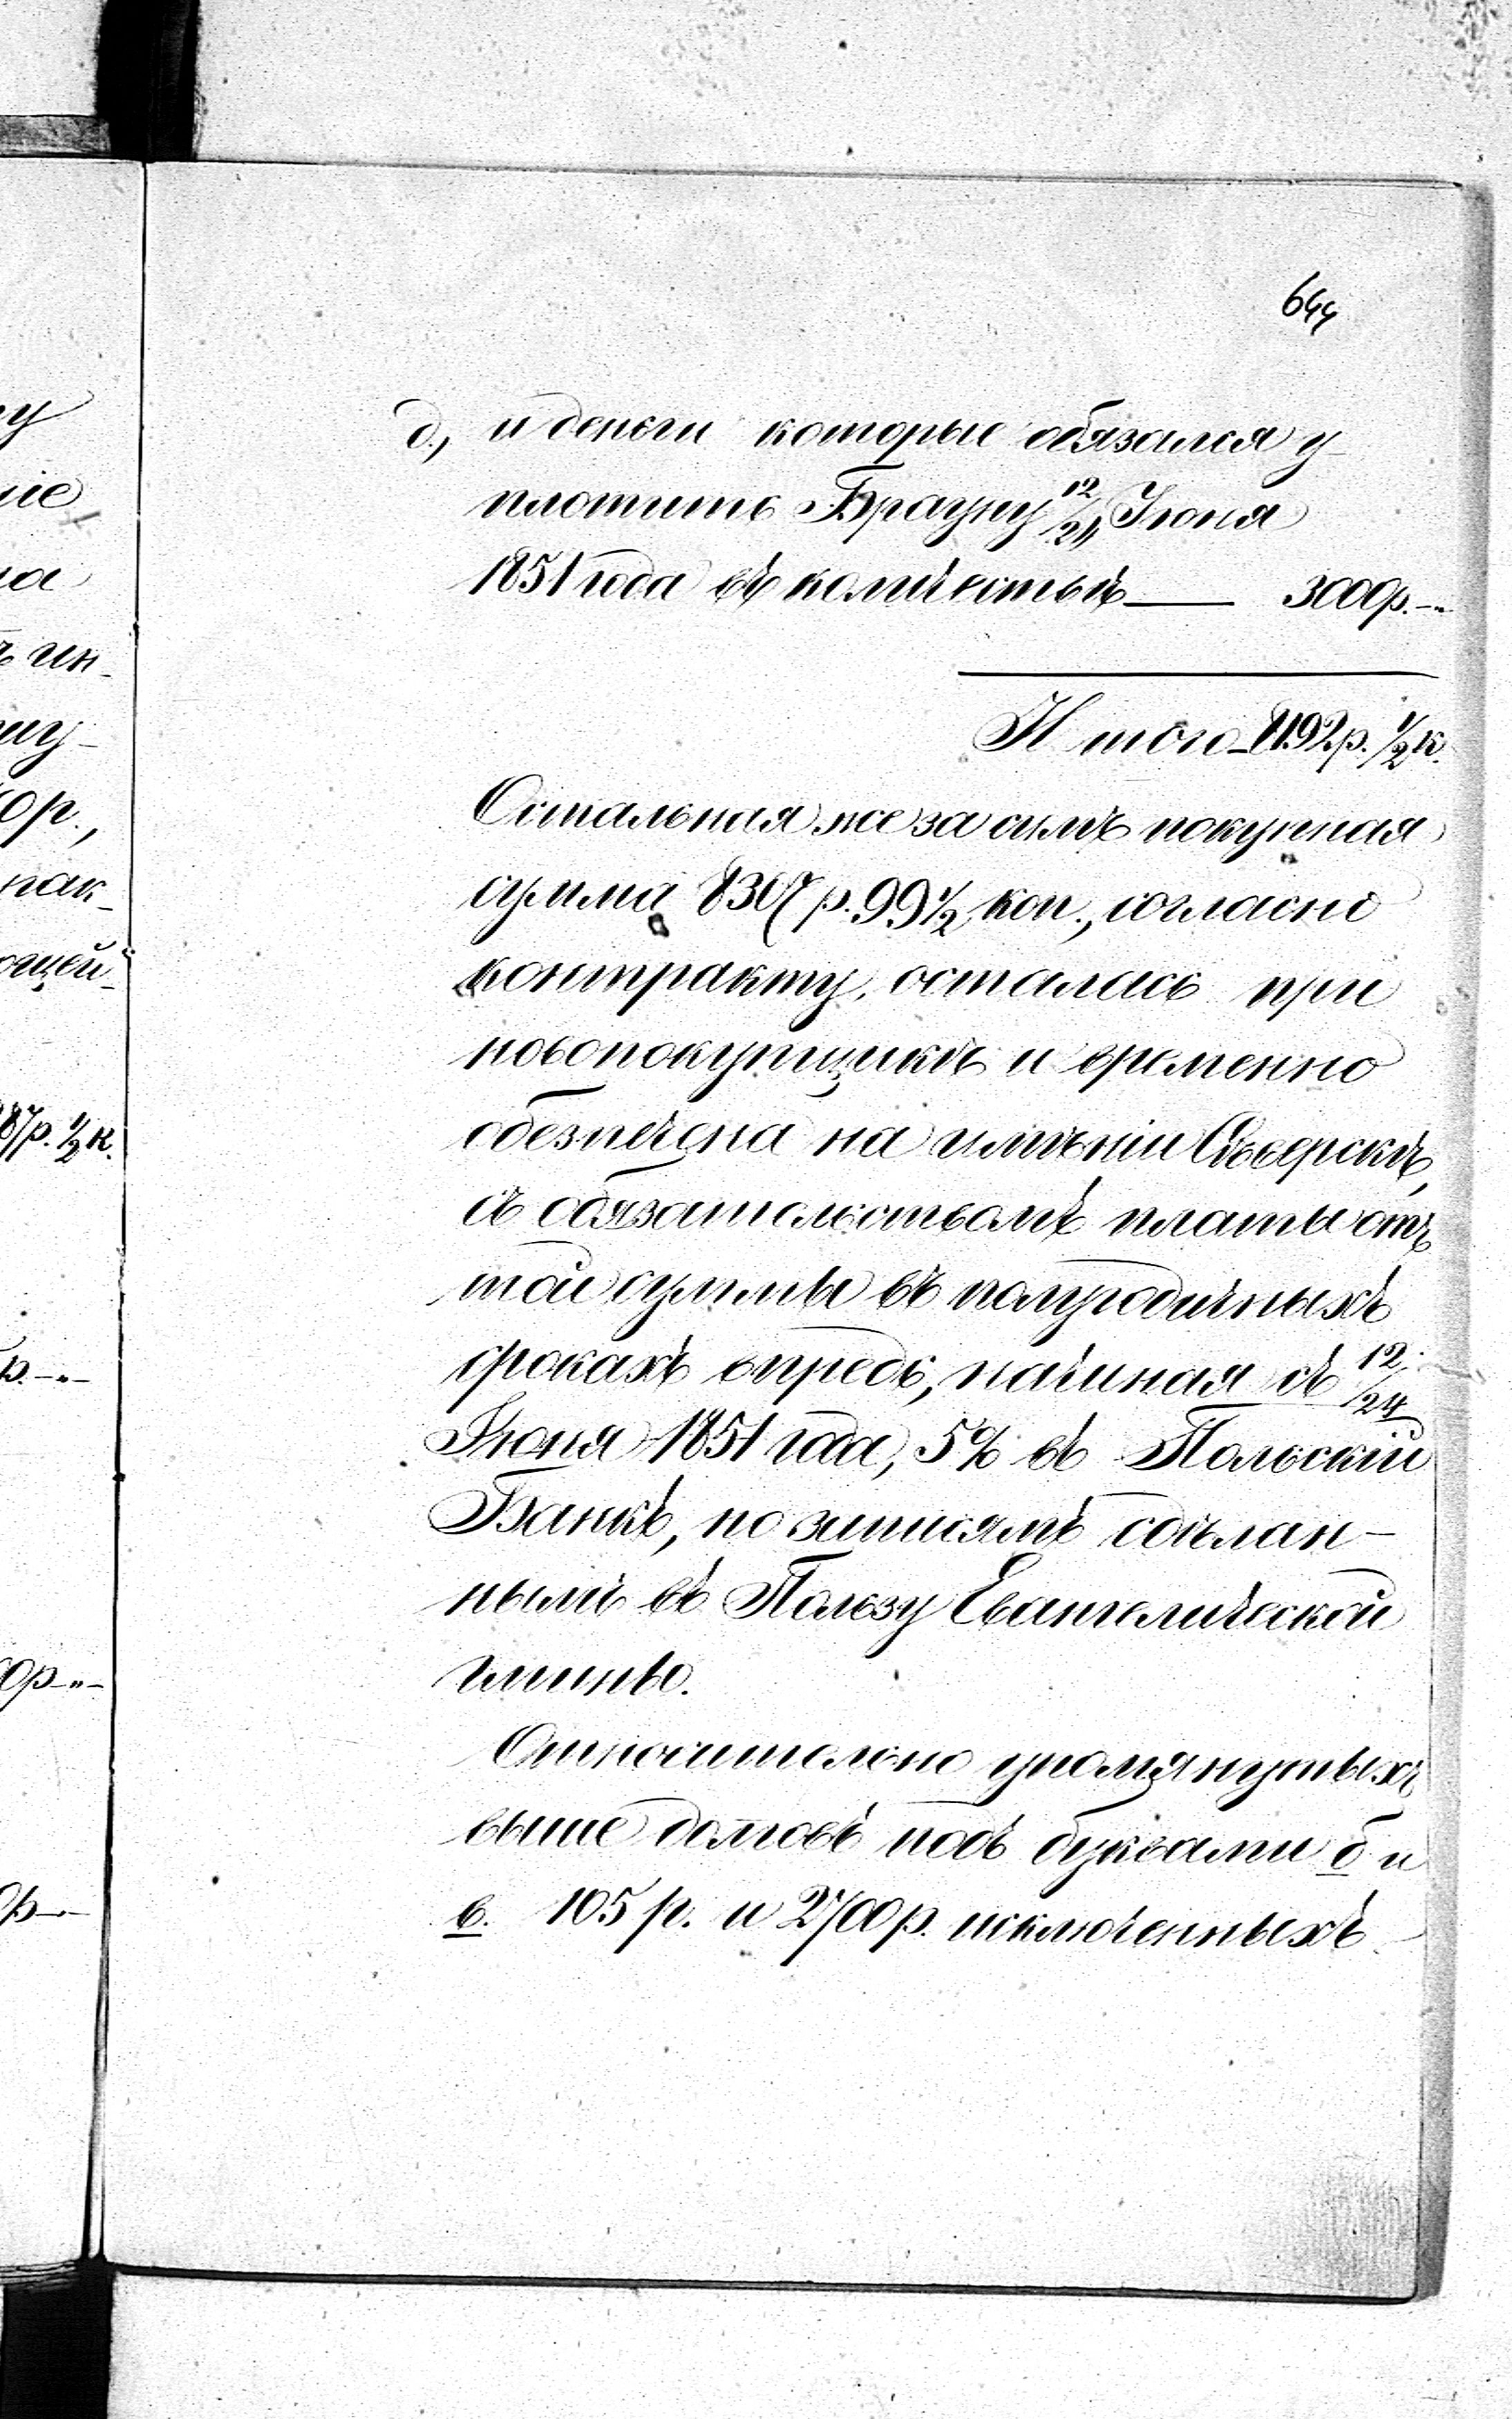 644
д., и деньги которые обязался у-
платить Брауну 12/24 Іюня
1851 года въ количествѣ — 3000р.-„
Итого 192р. ½к.
Остальная же за симъ покупная
сумма 8307 р. 99 ½ коп., согласно
контракту, осталась при
новопокупщикѣ и временно
обезпечена на имѣніи Сѣверскъ,
съ обязательствомъ платы отъ
той суммы въ полугодичныхъ
срокахъ впредь, начиная съ 12/24
Іюня 1851 года, 5% въ Польскій
Банкъ, по записямъ сдѣлан-
нымъ въ Пользу Евангелической
гмины.
Относительно упомянутыхъ
выше долговъ подъ буквами б и
в. 105 р. и 2700 р. исключенныхъ